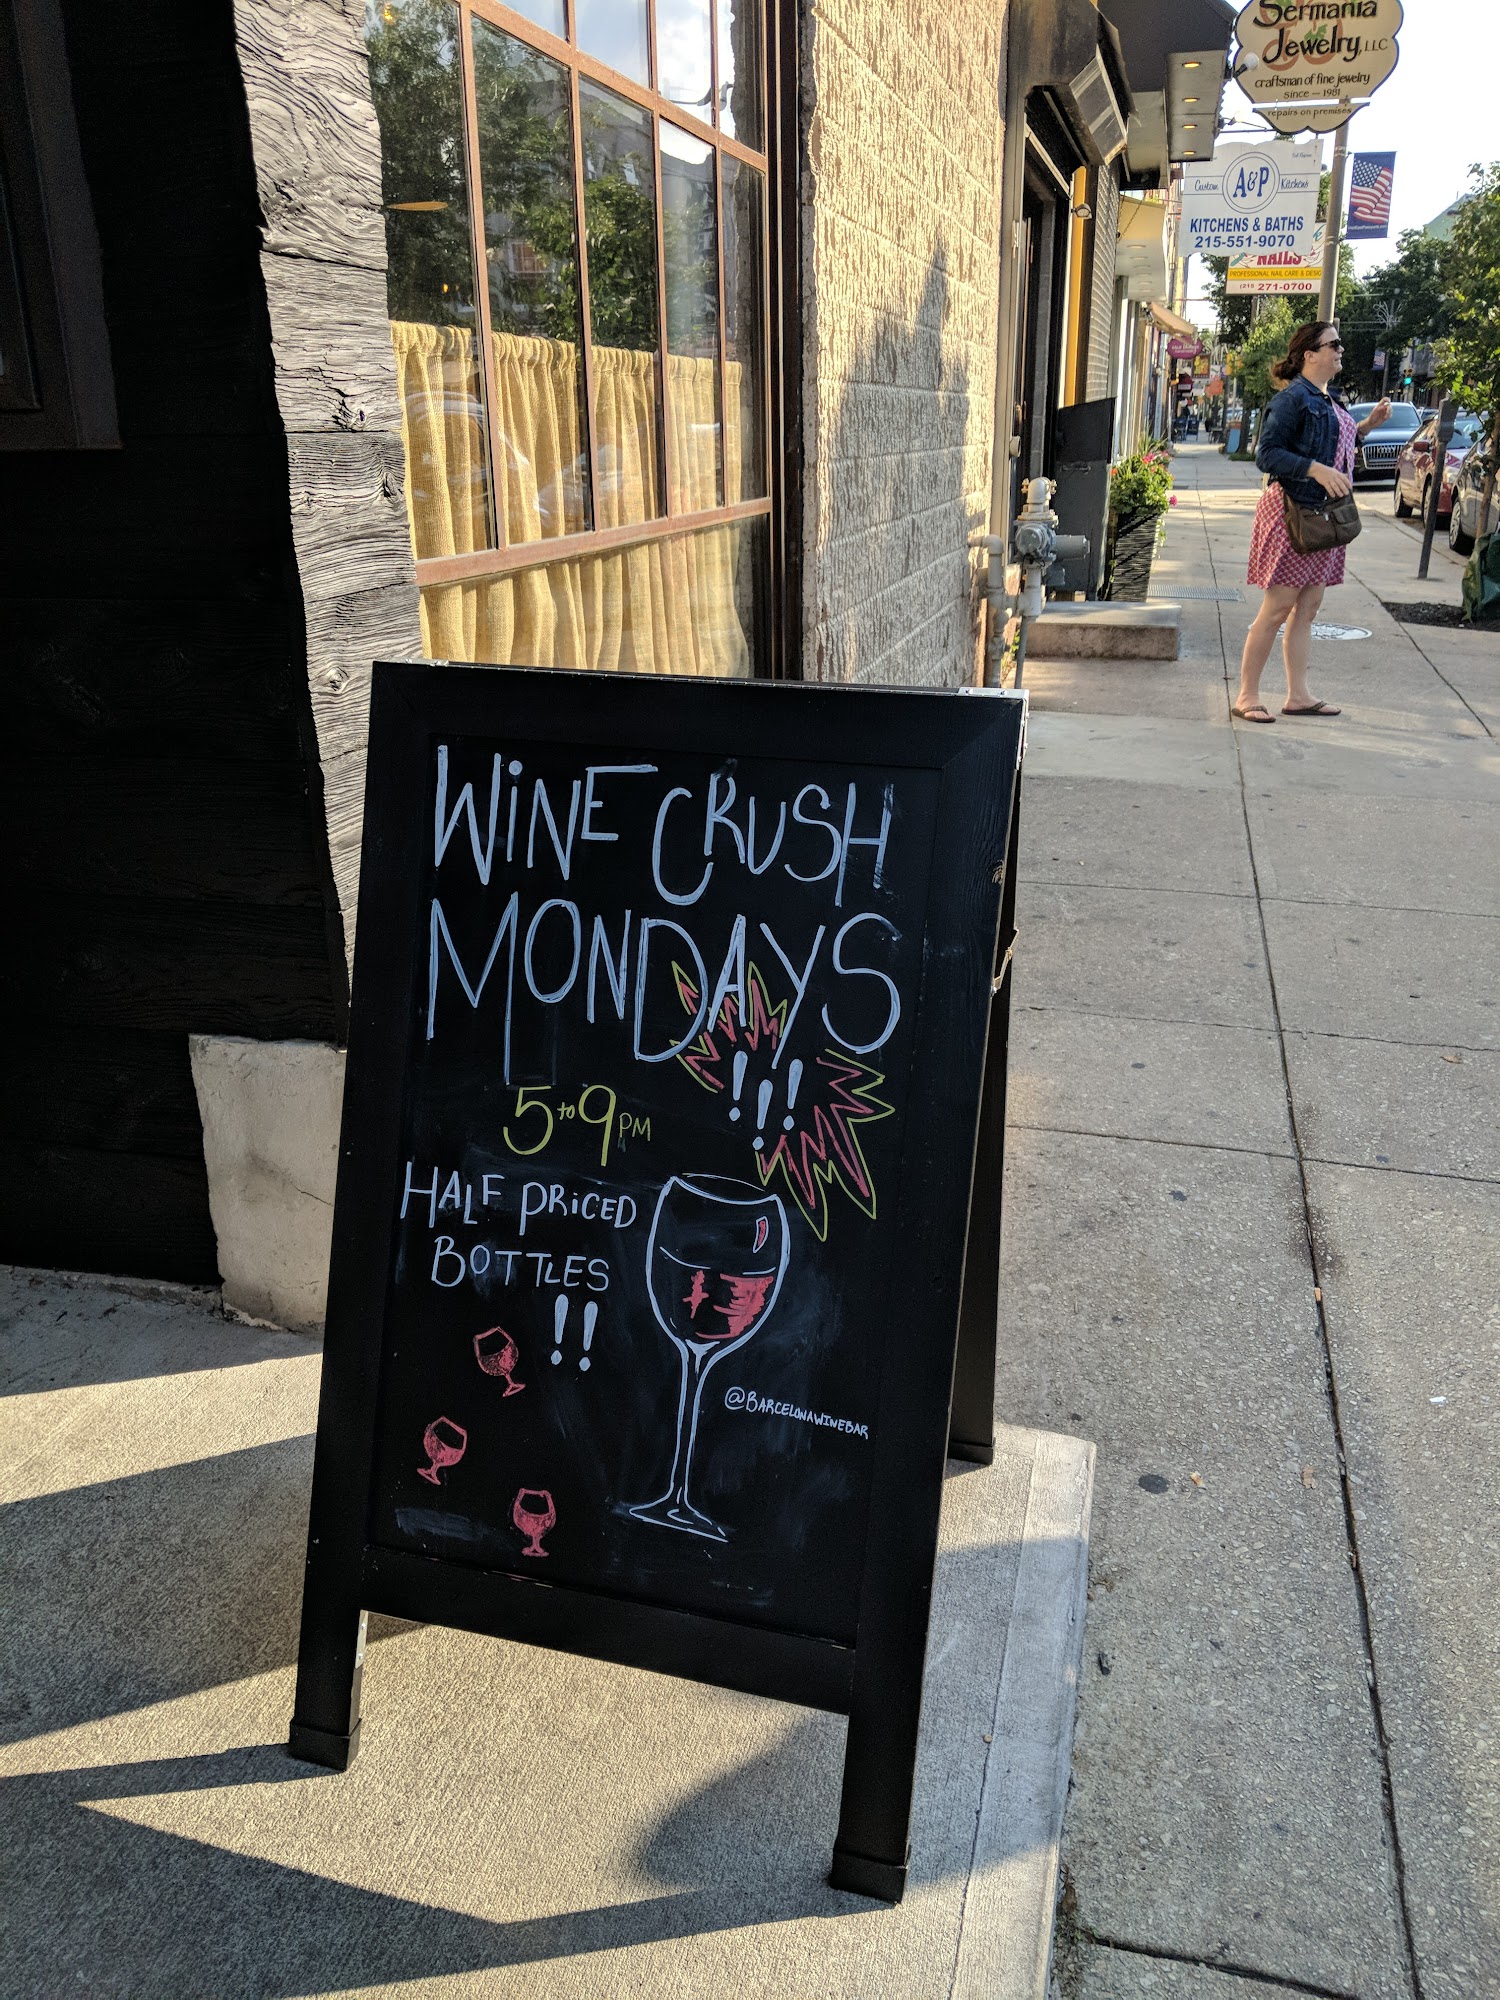 WINE CRUSH
MONDAYS
!!!
5 to 9 PM
HALF PRICED
BOTTLES
!!
@BARCELONAWINEBAR
Sermania
Jewelry, LLC
craftsman of fine jewelry
since — 1981
repairs on premises
Custom A&P Kitchens
KITCHENS & BATHS
215-551-9070
NAILS
PROFESSIONAL NAIL CARE & DESIG
(215) 271-0700